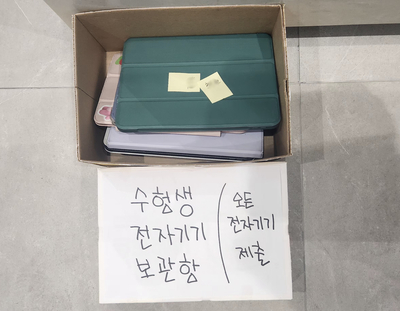 수험생
전자기기
보관함
모든
전자기기
제출